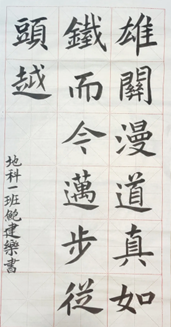 雄關漫道真如
鐵而今邁步從
頭越
地科一班鮑建樂書